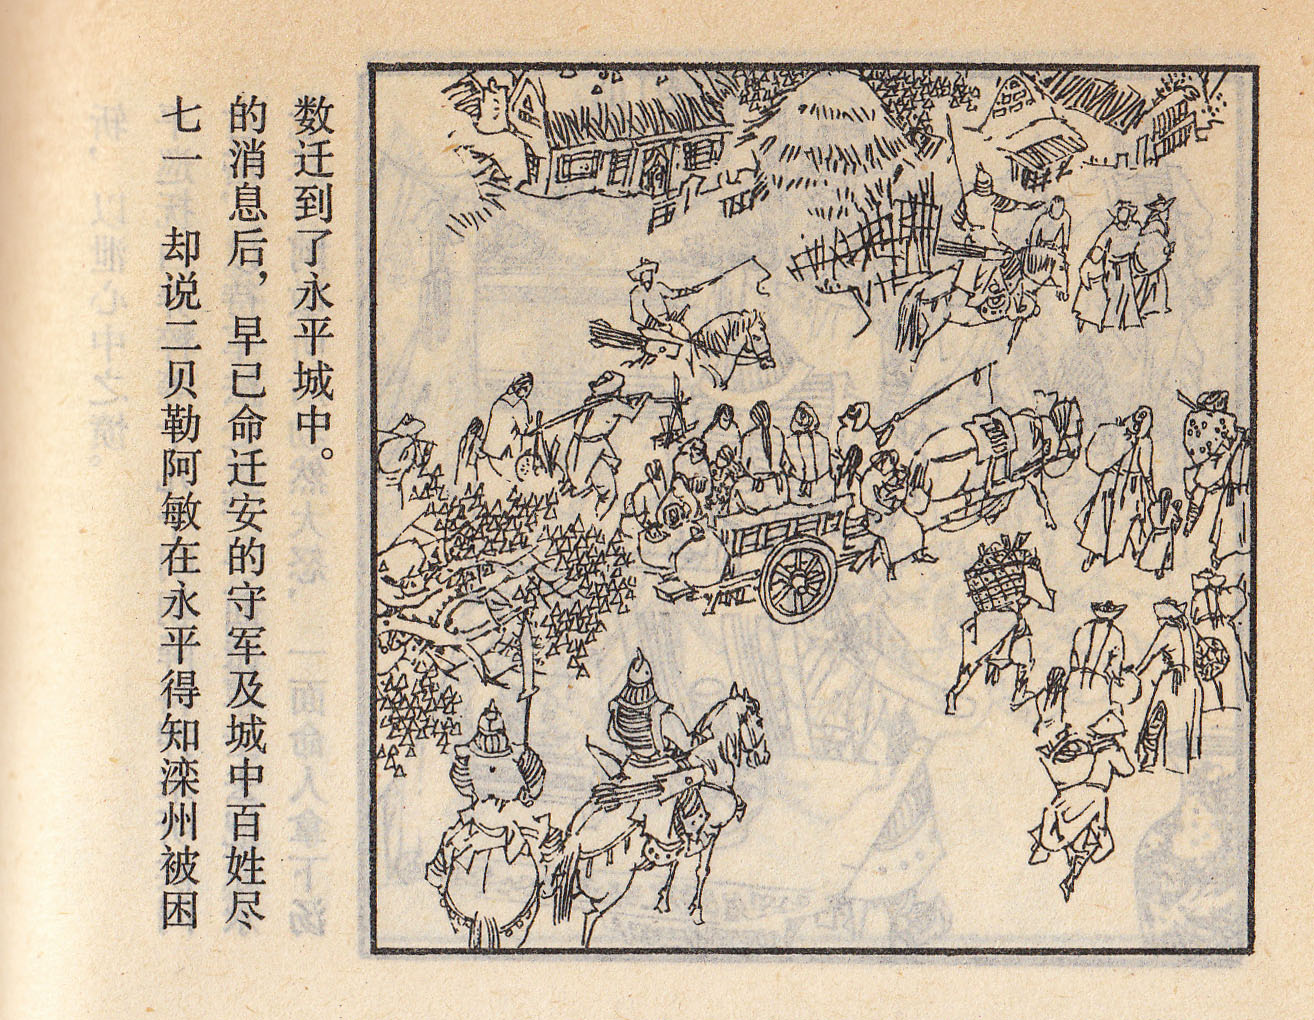 七一 却说二贝勒阿敏在永平得知滦州被困
的消息后，早已命迁安的守军及城中百姓尽
数迁到了永平城中。